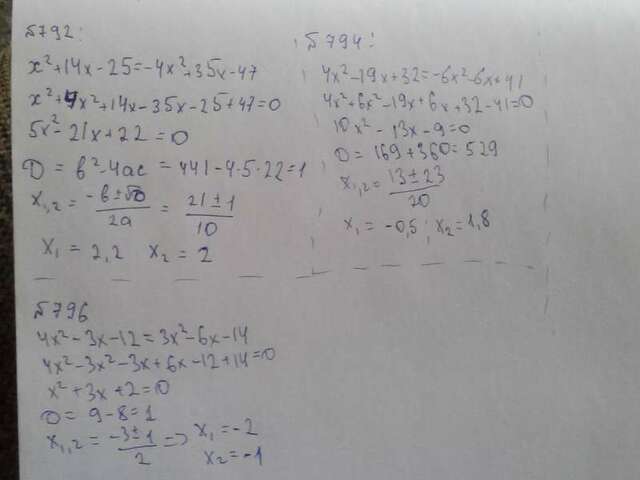 №792:
x²+14x-25=-4x²+35x-47
x²+4x²+14x-35x-25+47=0
5x²-21x+22=0
D = b²-4ac = 441-4·5·22=1
x₁,₂ = (-b±√D)/2a = (21±1)/10
x₁ = 2,2 x₂ = 2
№794:
4x²-19x+32=-6x²-6x+41
4x²+6x²-19x+6x+32-41=0
10x²-13x-9=0
D = 169+360=529
x₁,₂ = (13±23)/20
x₁ = -0,5; x₂=1,8
№796
4x²-3x-12=3x²-6x-14
4x²-3x²-3x+6x-12+14=0
x²+3x+2=0
D = 9-8=1
x₁,₂ = (-3±1)/2 => x₁ = -2
x₂ = -1